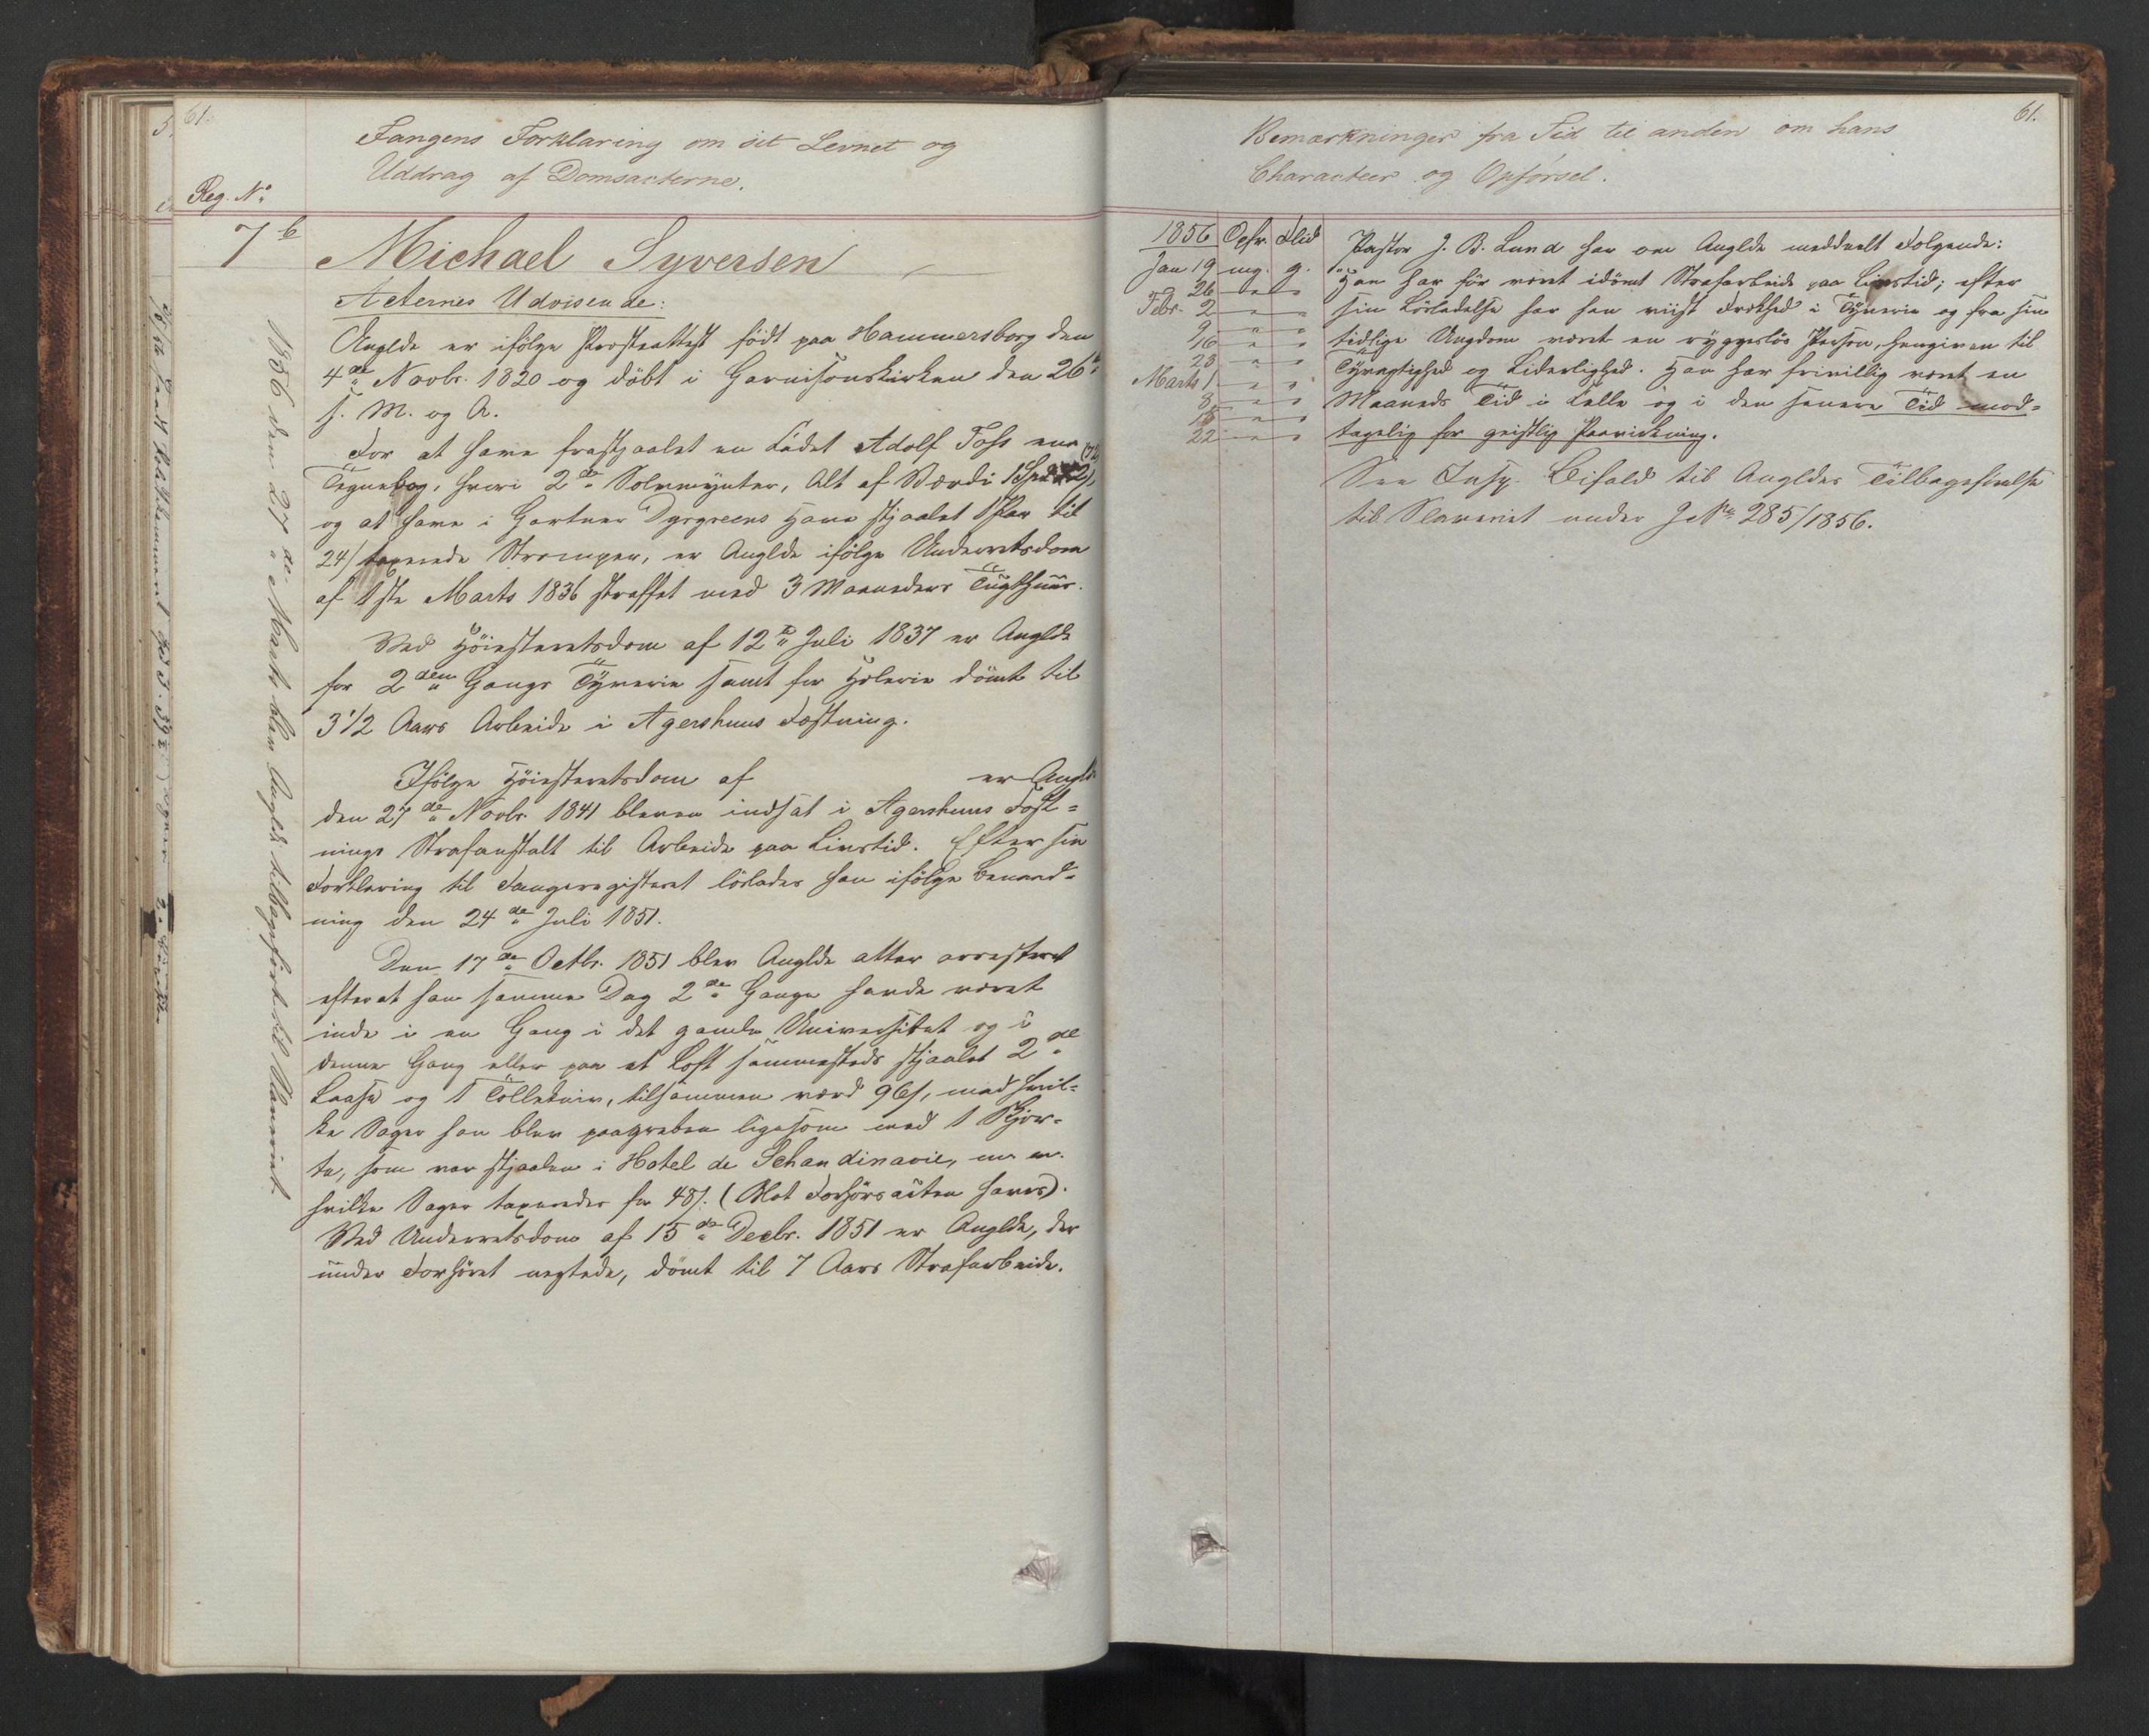 61.
Fangens Forklaring om sit Levnet og
Uddrag af Domsacterne.
Reg. No
7 b Michael Syversen
Acternes Udvisende:
Anglde er ifølge Præsteattest født paa Hammersborg den
4de Novbr. 1820 og döbt i Garnisonskirken den 26de
s. M. og A.
For at have frastjaalet en Cadet Adolf Foss en
Tegnebog, hvori 2de Sölvmynter, Alt af Værdi 1 Spd
og at have i Gartner Dyrgreens Have stjaalet 1 Par til
24/ taxerede Strömper, er Anglde ifölge Underretsdom
af 1ste Marts 1836 straffet med 3 Maaneders Tugthuus.
Ved Höiesteretsdom af 12te Juli 1837 er Anglde
for 2den Gangs Tyverie samt for Hæleri dömt til
3 1/2 Aars Arbeide i Agershuus Fæstning.
Ifölge Höiesteretsdom af er Anglde
den 27de Novbr. 1841 bleven indsat i Agershuus Fæst=
nings Strafanstalt til Arbeide paa Livstid. Efter sin
Forklaring til Fangeregisteret löslades han ifölge Benaad=
ning den 24de Juli 1851.
Den 17de Octbr. 1851 blev Anglde atter arresteret
efterat han samme Dag 2de Gange havde været
inde i en Gang i det gamle Universitet og i
denne Gang eller paa et Loft sammesteds stjaalet 2de
Laase og 1 Tollekniv, tilsammen værd 96/, med hvil=
ke Sager han blev paagreben ligesom med 1 Skjor=
te, som var stjaalen i Hotel de Schandinavie,
hvilke Sager taxeredes for 48/. (Blot Forhörsacten haves).
Ved Underretsdom af 15de Decbr. 1851 er Anglde, der
under Forhöret negtede, dömt til 7 Aars Strafarbeide.
1856 den 27de Marts blev Anglde tilbageført til Slaveriet.
61.
Bemærkninger fra Tid til anden om hans
Characteer og Opförsel.
1856 Opfr. Flid
Jan 19 mg. g.
26 " "
Febr. 2 " "
9 " "
16 " "
23 " "
Marts 1 " "
8 " "
15 " "
22 " "
Pastor J. B. Lund har om Anglde meddeelt Følgende:
"Han har för været idömt Strafarbeide paa Livstid; efter
sin Lösladelse har han viist Frækhed i Tyverie og fra sin
tidlige Ungdom været en ryggeslös Person, hengiven til
Tyvagtighed og Liderlighed. Han har frivillig været en
Maaneds Tid i Celle og i den senere Tid mod=
tagelig for geistlig Paavirkning.
See Insp. Eifald til Angldes Tilbageførelse
til Slaveriet under J No 285/1856.